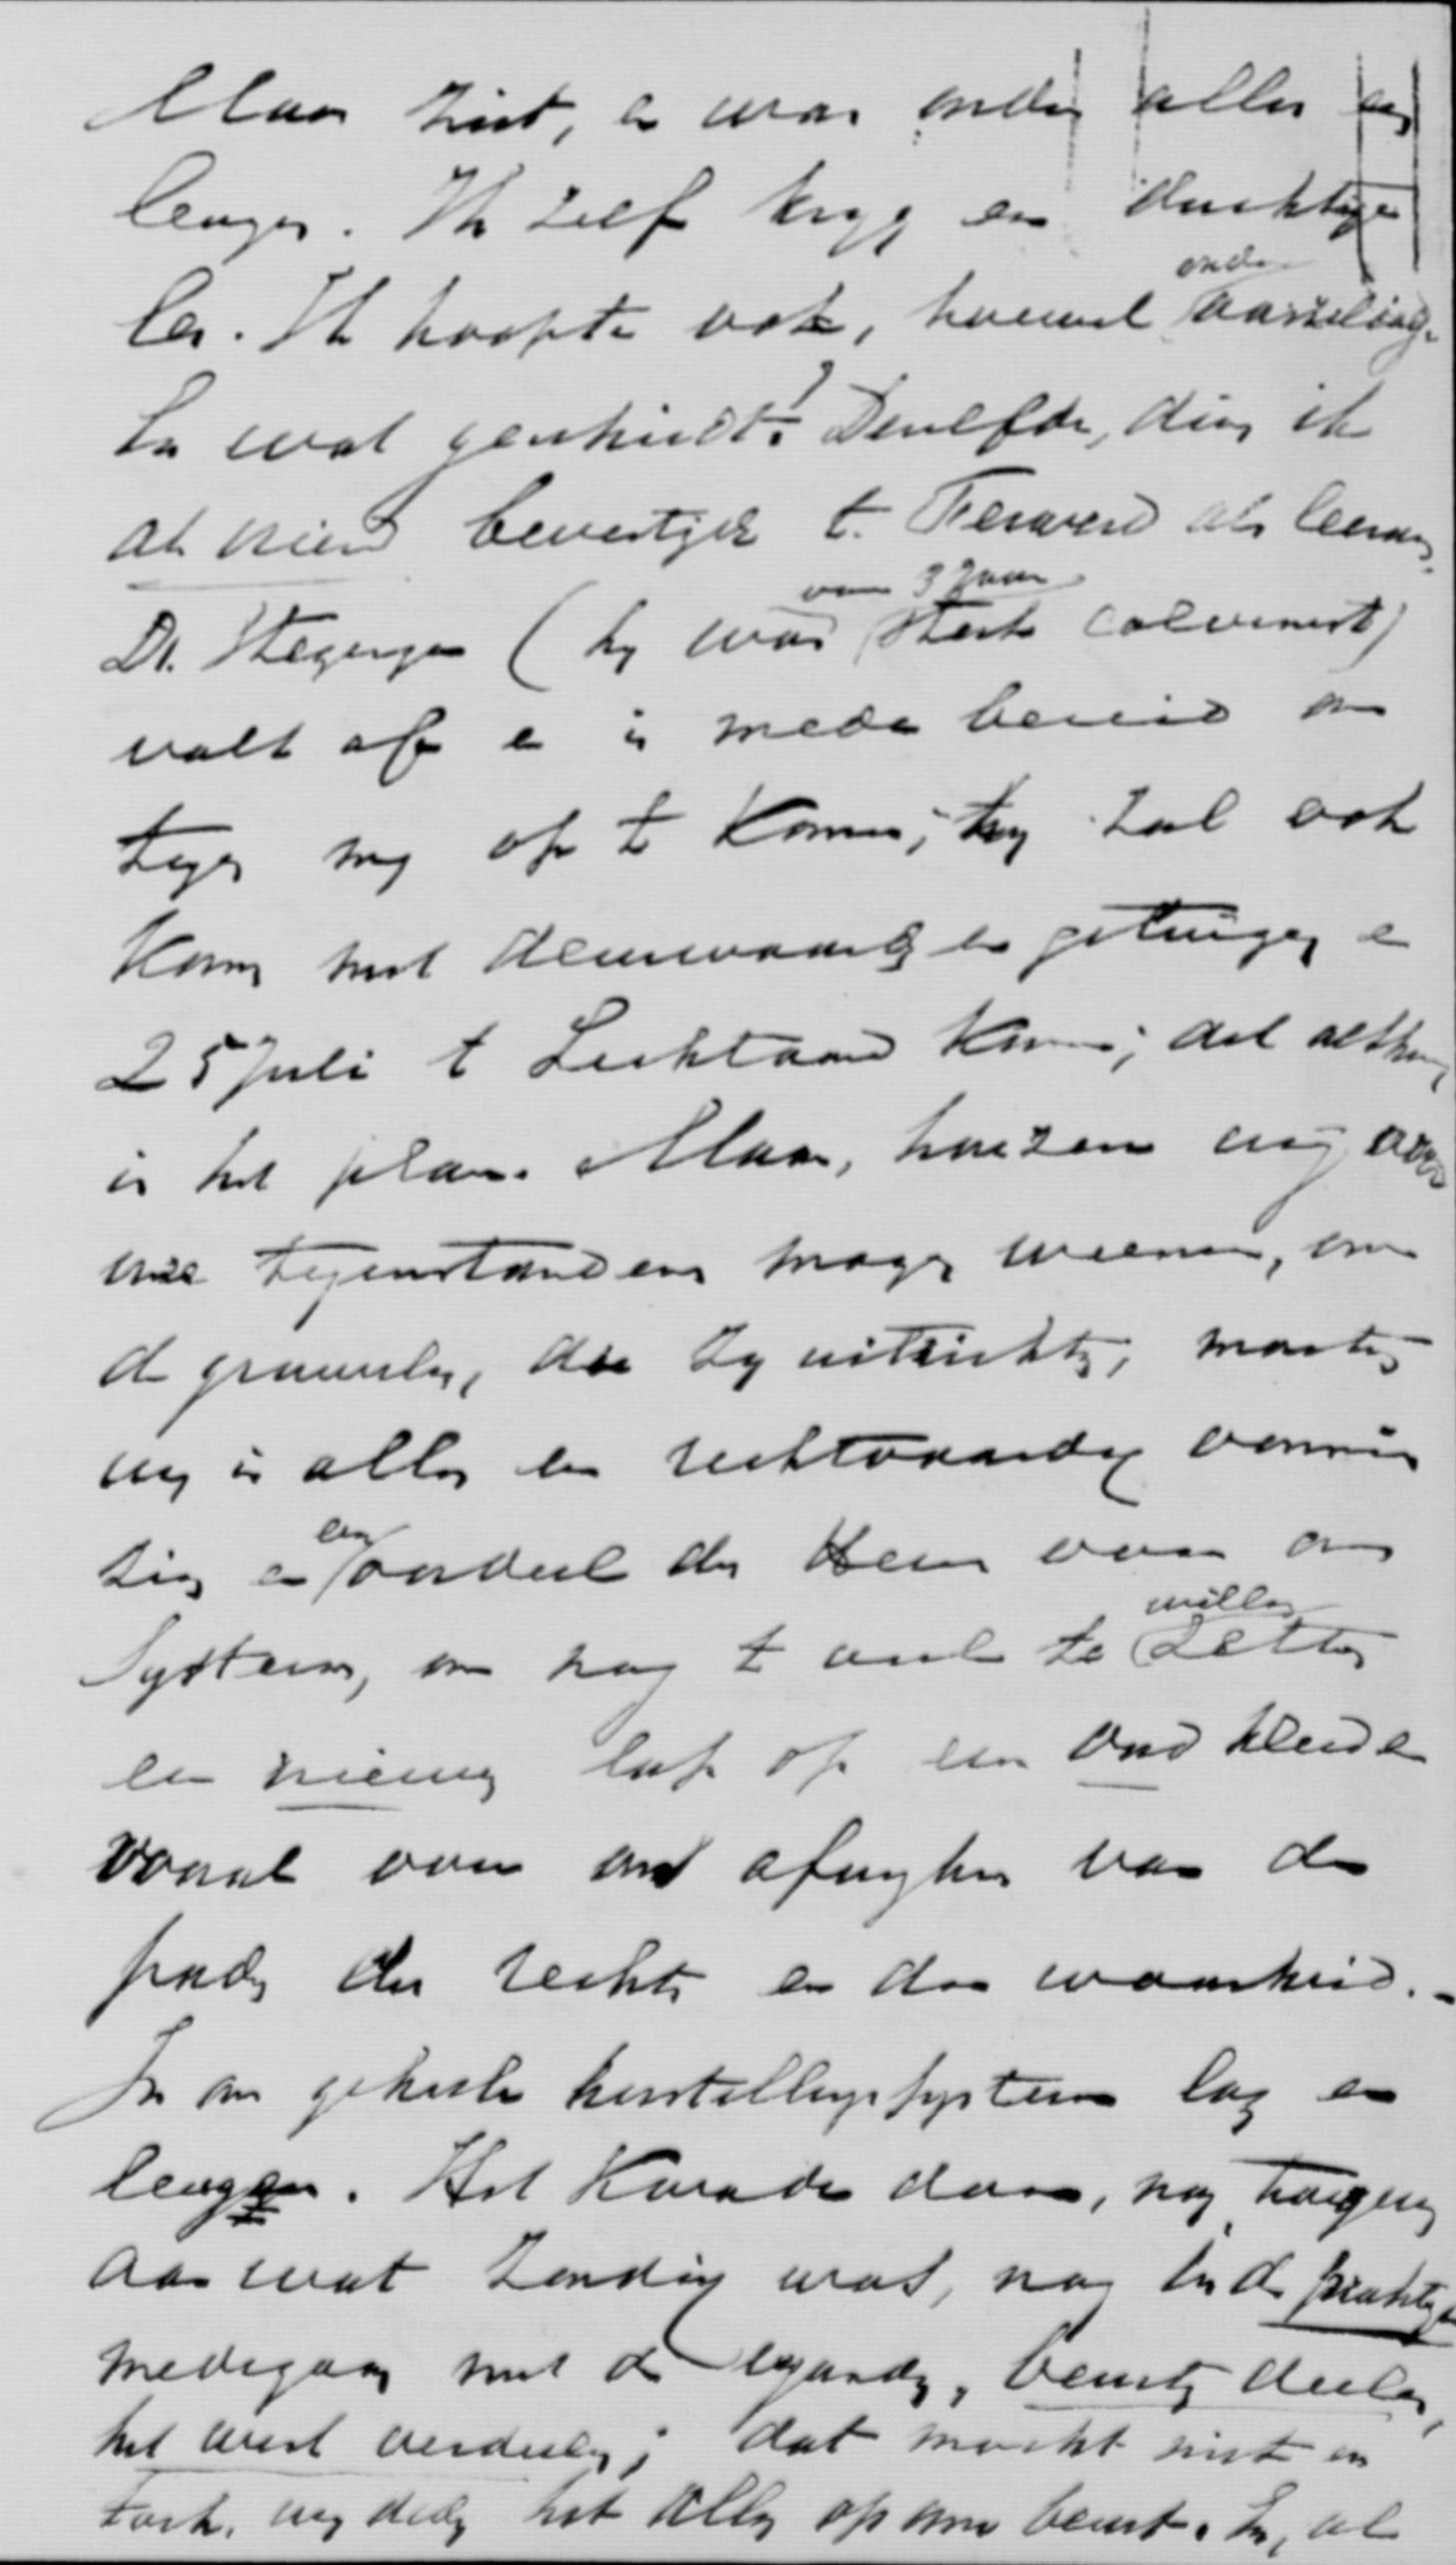 Maar ziet, er was onder alles een
leugen. Ik zelf kryg een duchtige
les. Ik hoopte ook, hoewel onder aarzeling.
En wat geschiedt? Dezelfde, dien ik
als vriend bevestigde te als leeraar,
Dr. Stegenga (hy was voor 3 jaar sterk calvinist)
valt af en is mede bereid om
tegen my op te komen; hy zal ook
komen met deurwaarder en getuigen en
25 Juli te komen; dat althans
is het plan. Maar, hoezeer wy over
onze tegenstanders mogen weenen, om
de gruwelen, die zy uitrichten, moeten
wy in alles een rechtvaardig vonnis
zien en een oordeel des Heeren over ons
Systeem, om nog te veel te willen zetten
een nieuwe lap op een oud kleed en
vooral over ons afwyken van de
paden des rechts en der waarheid. -
In ons geheele herstellingssysteem lag een
leugen. Het kwade doen, nog
aan wat zondig was, nog in de praktyk
medegaan met de vyanden, bewust deelen,
het werk verdeelen; dat mocht niet en
toch, wy deden het alles op ons bewust. En, al